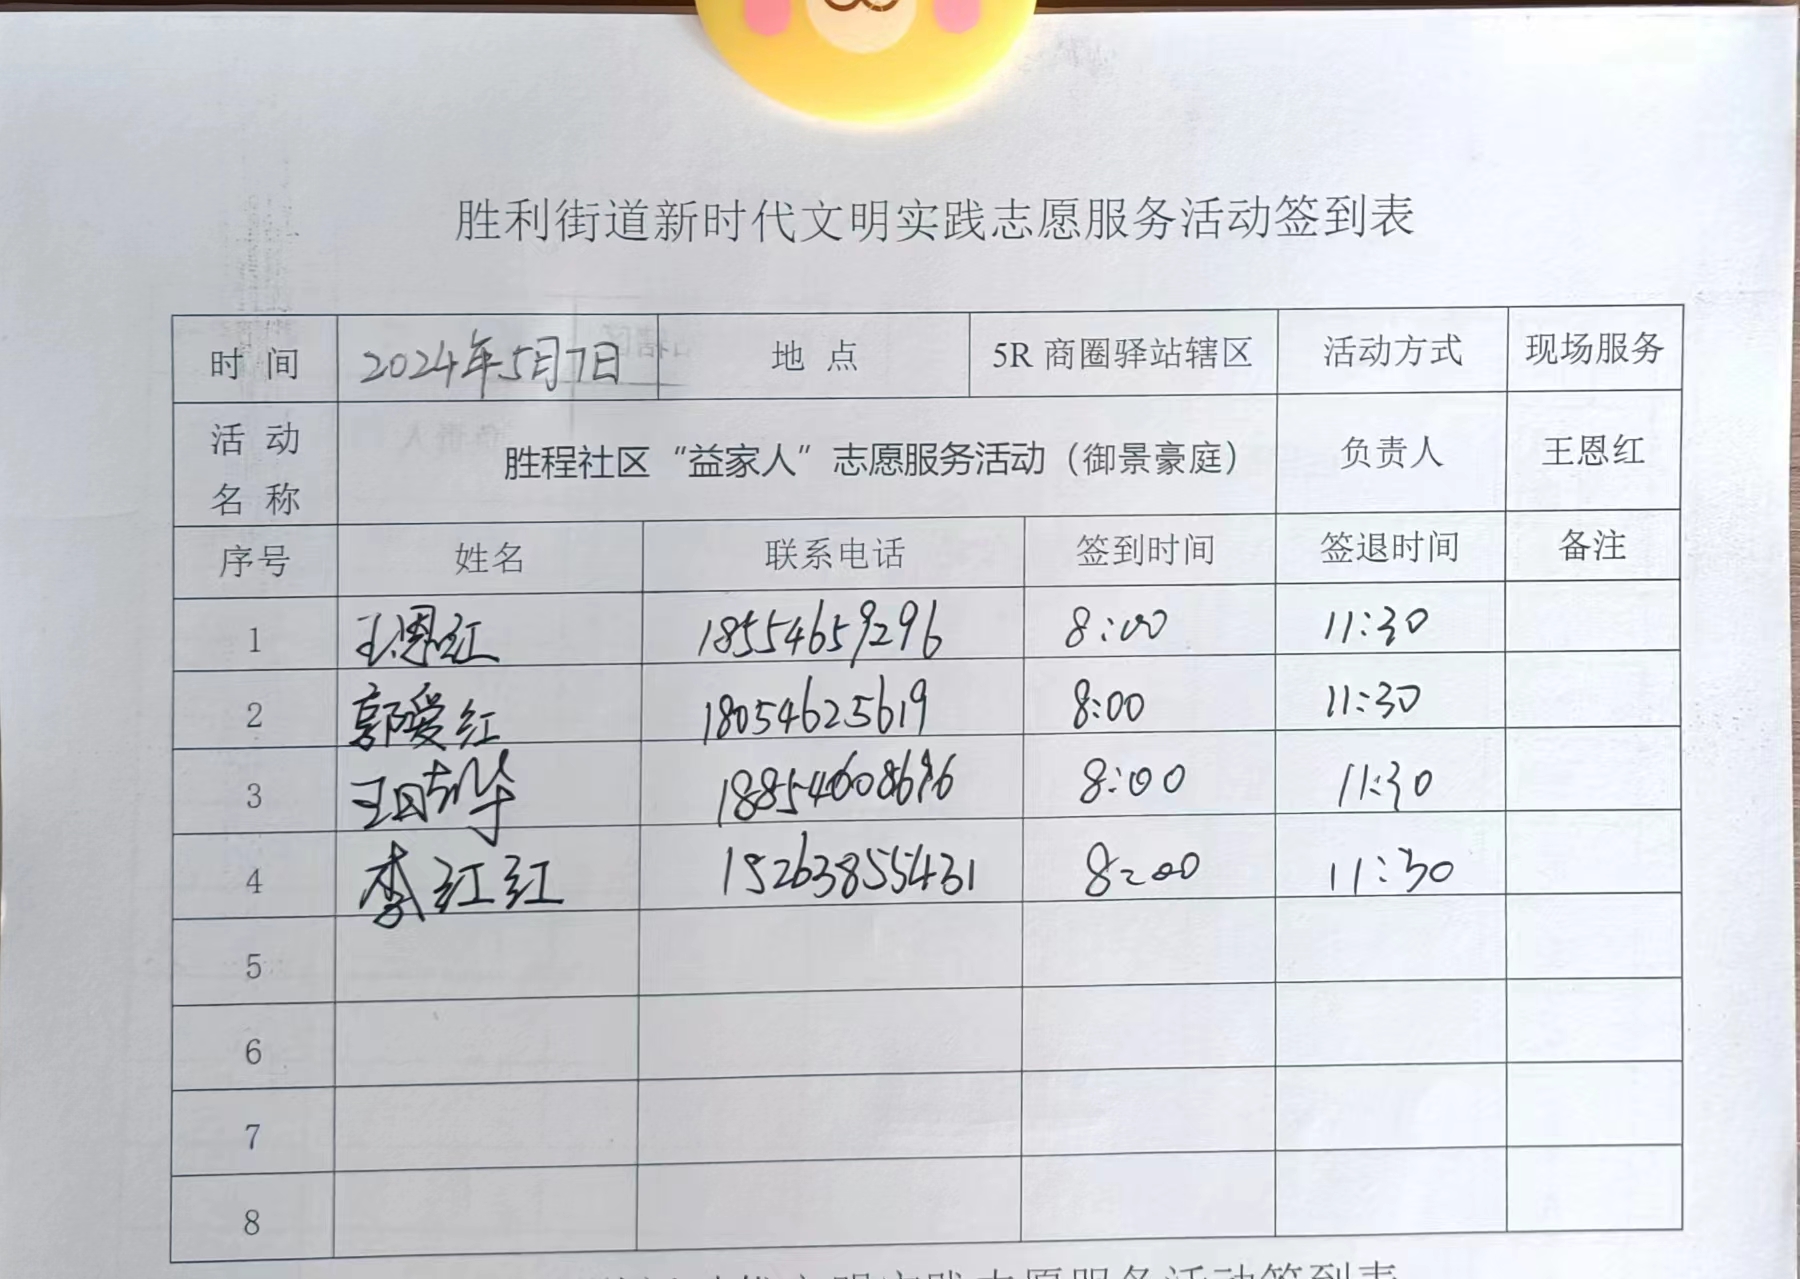 胜利街道新时代文明实践志愿服务活动签到表
时 间 2024年5月7日 地 点 5R 商圈驿站辖区 活动方式 现场服务
活 动 名 称 胜程社区“益家人”志愿服务活动（御景豪庭） 负责人 王恩红
序号 姓名 联系电话 签到时间 签退时间 备注
1 王恩红 18554659296 8:00 11:30
2 郭爱红 18054625619 8:00 11:30
3 8:00 11:30
4 李红红 15263855431 8:00 11:30
5
6
7
8
文明实践志愿服务活动签到表